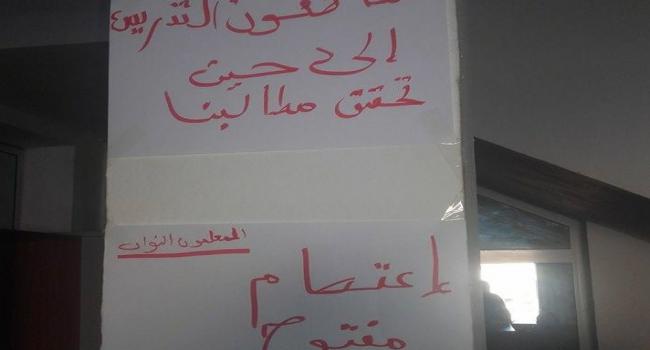 مقاطعون التدريس
إلى حين
تحقق مطالبنا
المعلمون النواب
إعتصام
مفتوح